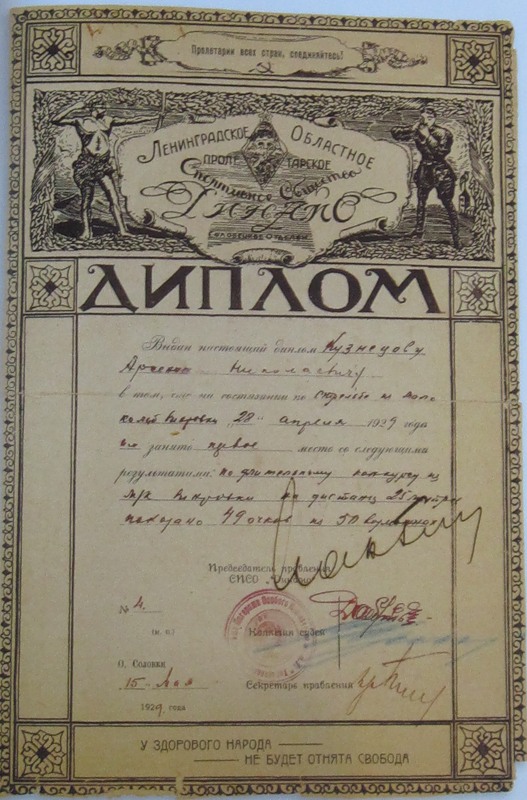 Пролетарии всех стран, соединяйтесь!
Ленинградское Областное
Пролетарское
Спортивное Общество
Динамо
Соловецкое отделен.
ДИПЛОМ
Выдан настоящий диплом Кузнецову
Николаевичу
в том, что на состязании по стрельбе из мало
"28" апреля 1929 года
им занято первое место со следующими
результатами: по
м/к винтовки на дистанц. 25 метров
49 очков из 50
Председатель правления
СПСО „Динамо"
№ 4.
(м. п.) Коллегия судей
О. Соловки
15 - Мая Секретарь правления
1929 года
У ЗДОРОВОГО НАРОДА
НЕ БУДЕТ ОТНЯТА СВОБОДА